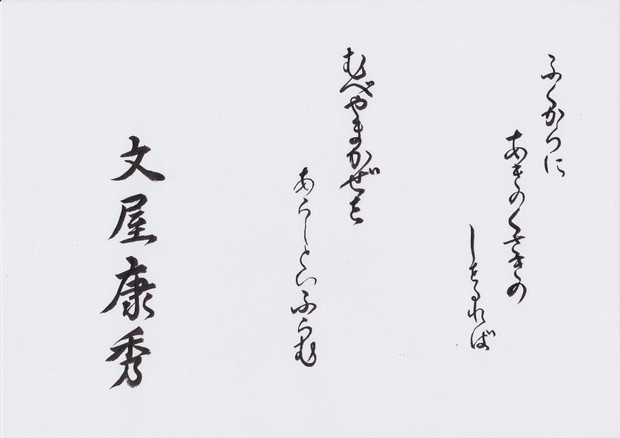 ふくからに
あきのくさきの
しをるれば
むべやまかぜを
あらしといふらむ
文屋康秀